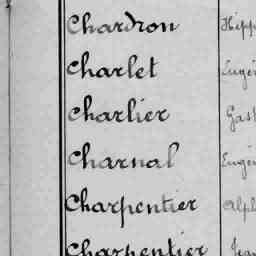 Chardron Hipp
Charlet Eugé
Charlier Gast
Charnal Eugé
Charpentier Alph
Charpentier Jean